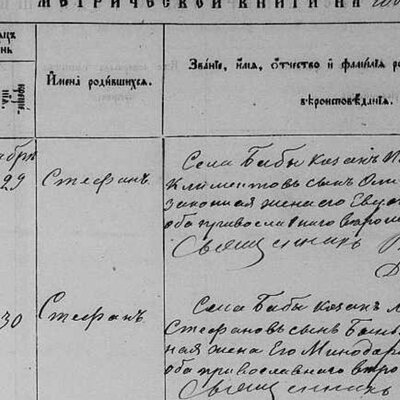 МЕТРИЧЕСКОЙ КНИГИ НА
Имена родившихся.
Званіе, имя, отчество и фамилія ро
вѣроисповѣданія.
29
Стефанъ
Села Бабы козакъ
Климентовъ сынъ
законная жена его
оба православнаго
Священникъ
30
Стефанъ
Села Бабы козакъ
Стефановъ сынъ
ная жена Его Минодора
оба православнаго
Священникъ